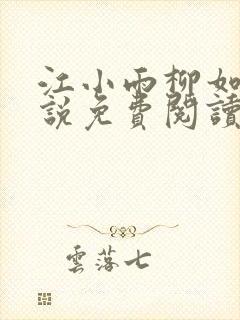 江小雨柳如
說免費閱讀
雲落七